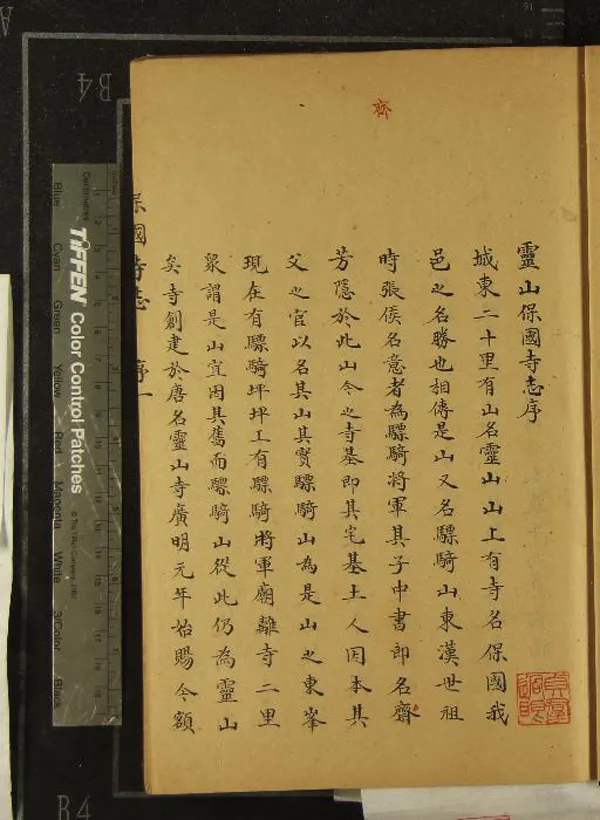 齊
靈山保國寺志序
城東二十里有山名靈山山上有寺名保國我
邑之名勝也相傳是山又名驃騎山東漢世祖
時張侯名意者為驃騎將軍其子中書郎名齊
芳隱於此山今之寺基即其宅基土人因本其
父之官以名其山其實驃騎山為是山之東峯
現在有驃騎坪坪上有驃騎將軍廟離寺二里
衆謂是山宜因其舊而驃騎山從此仍為靈山
矣寺創建於唐名靈山寺廣明元年始賜今額
保國寺志 序一
Centimetres
TIFFEN Color Control Patches
© The Tiffen Company, 2007
Blue
Cyan
Green
Yellow
Red
Magenta
White
3/Color
Black
B4
B4
A